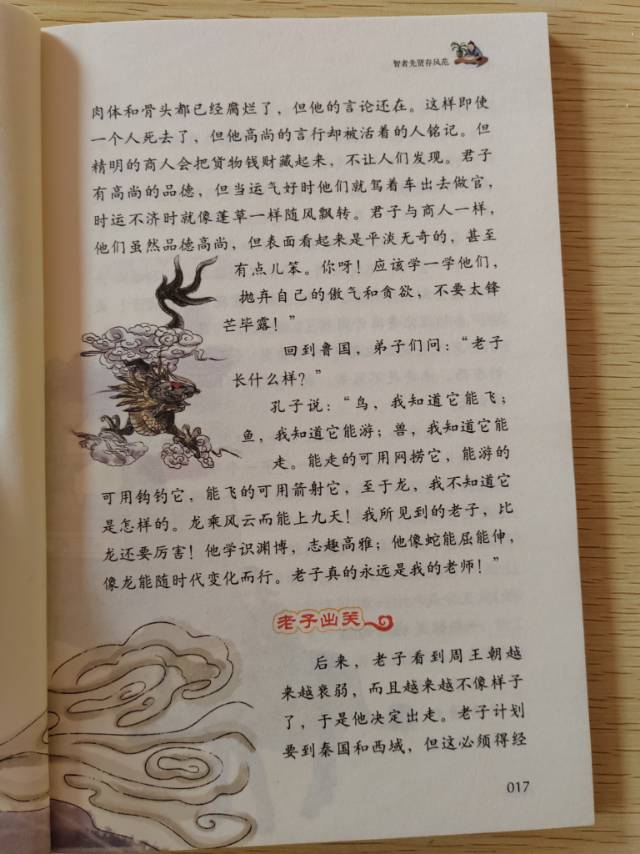 智者先贤存风范
肉体和骨头都已经腐烂了，但他的言论还在。这样即使
一个人死去了，但他高尚的言行却被活着的人铭记。但
精明的商人会把货物钱财藏起来，不让人们发现。君子
有高尚的品德，但当运气好时他们就驾着车出去做官，
时运不济时就像蓬草一样随风飘转。君子与商人一样，
他们虽然品德高尚，但表面看起来是平淡无奇的，甚至
有点儿笨。你呀！应该学一学他们，
抛弃自己的傲气和贪欲，不要太锋
芒毕露！”
回到鲁国，弟子们问：“老子
长什么样？”
孔子说：“鸟，我知道它能飞；
鱼，我知道它能游；兽，我知道它能
走。能走的可用网捞它，能游的
可用钩钓它，能飞的可用箭射它，至于龙，我不知道它
是怎样的。龙乘风云而能上九天！我所见到的老子，比
龙还要厉害！他学识渊博，志趣高雅；他像蛇能屈能伸，
像龙能随时代变化而行。老子真的永远是我的老师！”
老子出关
后来，老子看到周王朝越
来越衰弱，而且越来越不像样子
了，于是他决定出走。老子计划
要到秦国和西域，但这必须得经
017